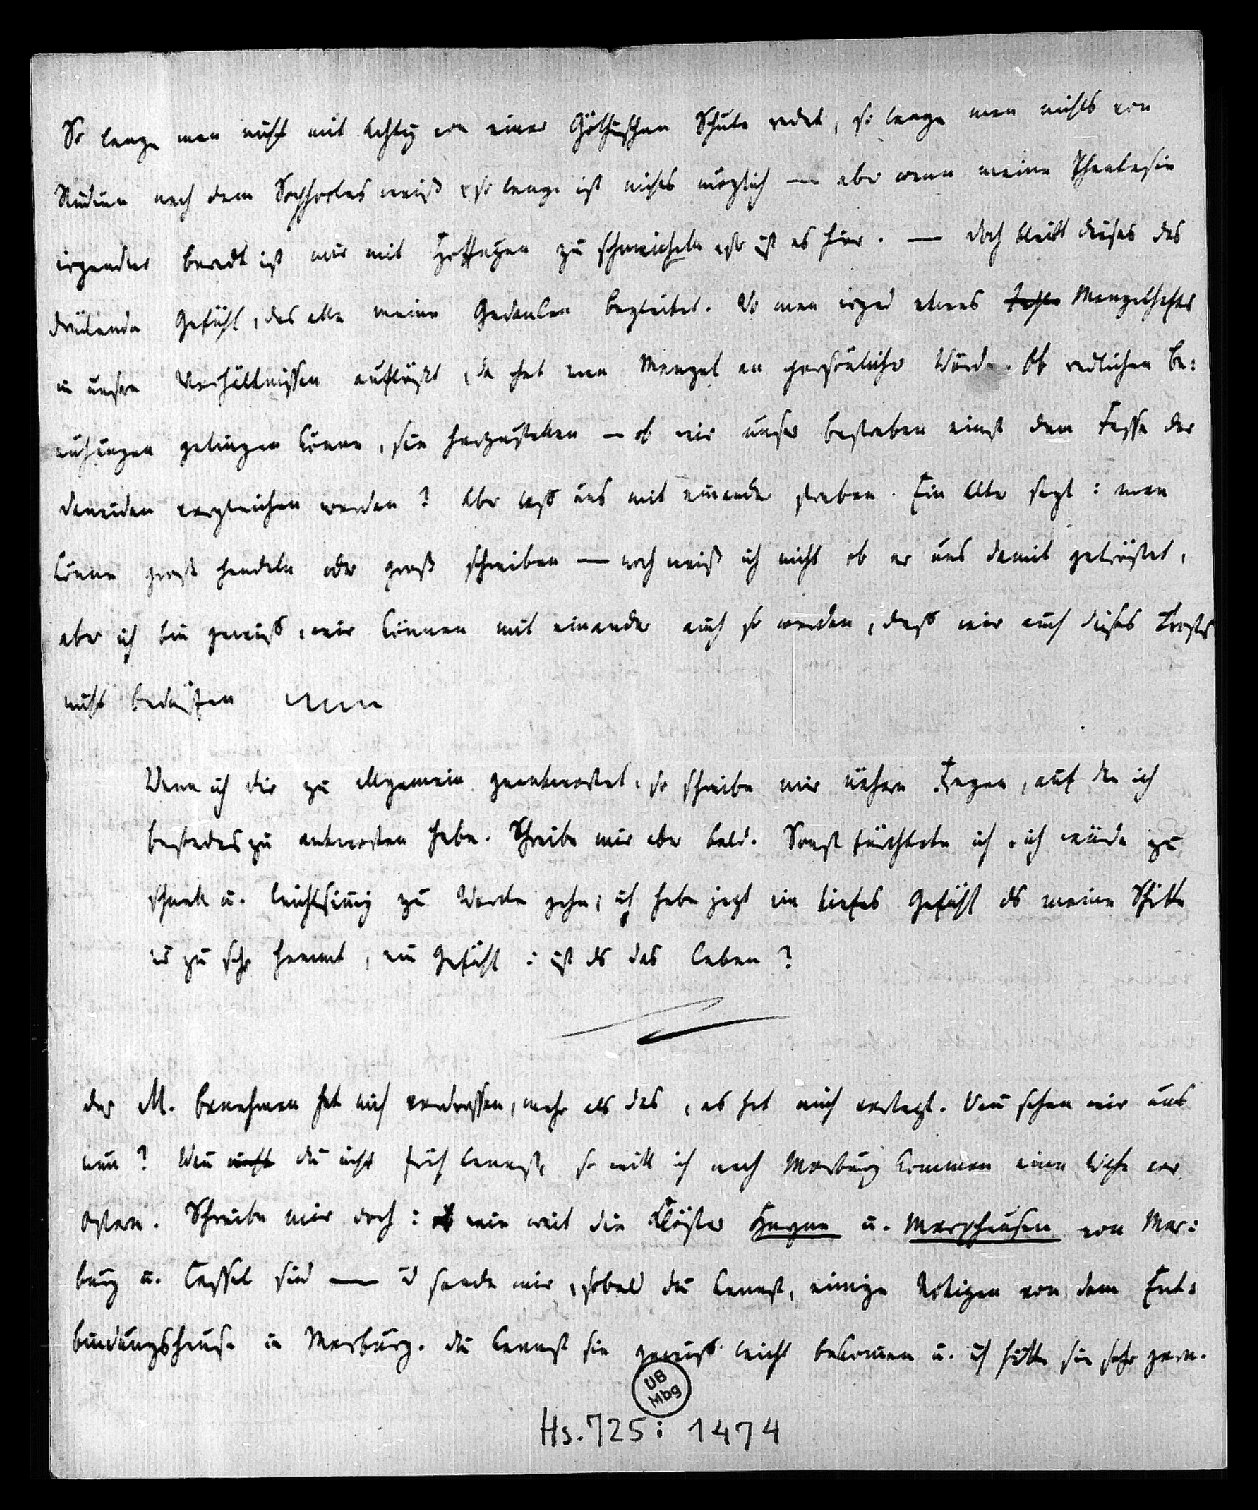 So lange man nicht mit Achtg von einer Göthischen Schule redet, so lange man nichts von
Studium nach dem Sophocles weiß, so lange ist nichts möglich — aber wenn meine Phantasie
irgendwo beredt ist mir mit Hoffngen zu schmeicheln, so ist es hier. — Doch bleibt dieses das
drükende Gefühl, das alle meine Gedanken begleitet. Wo man irgend etwas Mangelhaftes
in unsern Verhältnissen aufläßt, da hat man Mangel an persönlicher Würde. Ob redlichen Be:
mühungen gelingen könne, sie herzustellen — ob wir unser bestreben einst dem Fasse der
Danaiden vergleichen werden? Aber laß uns mit einander streben. Ein Alter sagt: man
könne groß handeln oder groß schreiben — noch weiß ich nicht ob er uns damit getröstet,
aber ich bin gewiß, wir können mit einander auch so werden, daß wir auch dieses Trostes
nicht bedürfen
Wenn ich dir zu allgemein geantwortet, so schreibe mir nähere Fragen, auf die ich
bestimtes zu antworten habe. Schreibe mir aber bald. Sonst fürchtete ich, ich würde zu
schnell u. leichtsinig zu Werke gehn; ich habe jezt ein tiefes Gefühl das meine Schritte
zu sehr hemmt, ein Gefühl: ist das das Leben?
Der M. benehmen hat mich verdrossen, mehr als das, es hat mich verlezt. Wen sehen wir uns
nun? Wen du nicht früh kannst, so will ich nach Marburg kommen eine Woche vor
Ostern. Schreibe mir doch: wie weit die Klöster Hayna u. Merxhausen von Mar:
burg u. Cassel sind — u sende mir, sobald du kannst, einige Notizen von dem Ent:
bindungshause in Marburg. Du kannst sie gewiß leicht bekommen u. ich hätte sie sehr gern.
UB
Mbg
Hs. 725: 1474